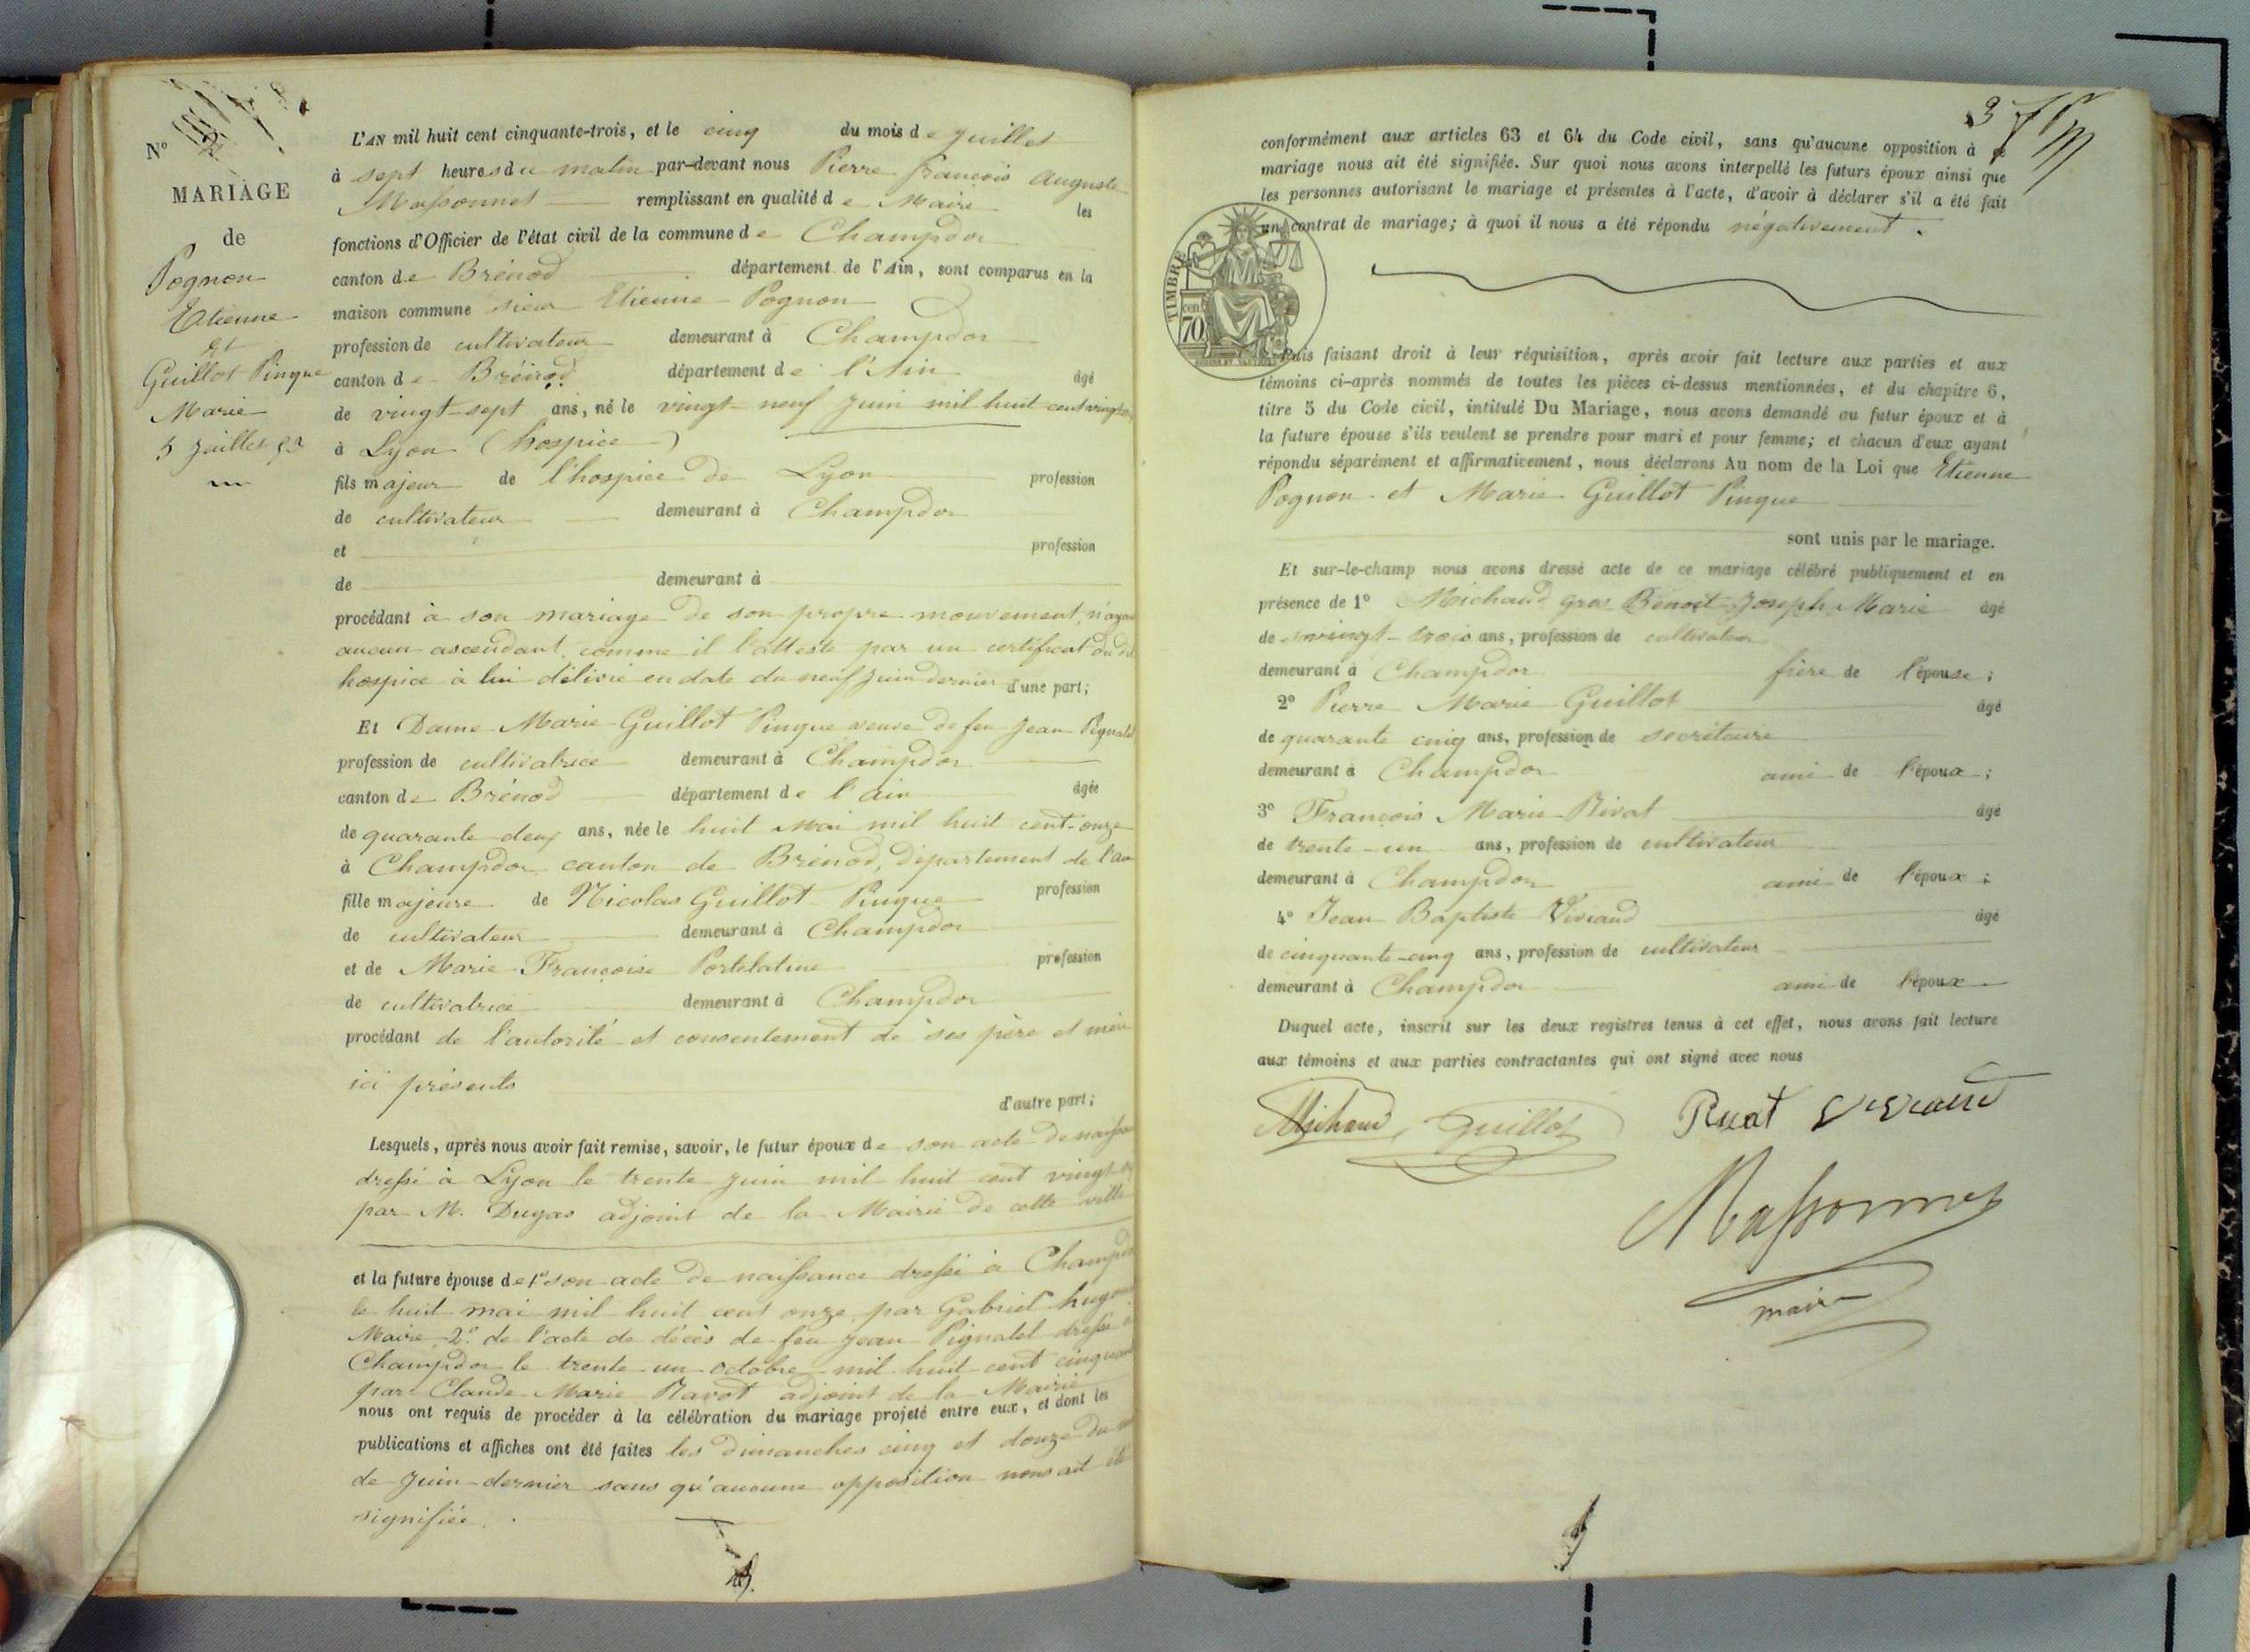 N°
MARIAGE
de
Pognon
Etienne
et
Guillot Pinque
Marie
5 Juillet 53
L'AN mil huit cent cinquante-trois, et le cinq du mois de Juillet
à sept heures du matin par-devant nous Pierre françois Auguste
Massonnet remplissant en qualité de Maire les
fonctions d'Officier de l'état civil de la commune de Champdor
canton de Brénod département de l'Ain, sont comparus en la
maison commune sieur Etienne Pognon
profession de cultivateur demeurant à Champdor
canton de Brénod département de l'Ain âgé
de vingt-sept ans, né le vingt-neuf Juin mil huit cent vingt
à Lyon (hospice)
fils majeur de l'hospice de Lyon profession
de cultivateur demeurant à Champdor
et profession
de demeurant à
procédant à son mariage de son propre mouvement, n'ayant
aucun ascendant, comme il l'atteste par un certificat du dit
hospice à lui délivré en date du neuf Juin dernier d'une part;
Et Dame Marie Guillot Pinque veuve de feu Jean Pignatel
profession de cultivatrice demeurant à Champdor
canton de Brénod département de l'ain âgée
de quarante-deux ans, née le huit Mai mil huit cent-onze
à Champdor canton de Brénod, département de l'ain
fille majeure de Nicolas Guillot Pinque profession
de cultivateur demeurant à Champdor
et de Marie Françoise Portelatine profession
de cultivatrice demeurant à Champdor
procédant de l'autorité et consentement de ses père et mère
ici présents
d'autre part;
Lesquels, après nous avoir fait remise, savoir, le futur époux de son acte de naissance
dressé à Lyon le trente Juin mil huit cent vingt
par M. Dugas adjoint de la Mairie de cette ville
et la future épouse de 1° son acte de naissance dressé à Champdor
le huit mai mil huit cent onze par Gabriel
Maire, 2° de l'acte de décès de feu Jean Pignatel dressé à
Champdor le trente-un octobre mil huit cent cinquante
par Claude Marie Ravot adjoint de la Mairie
nous ont requis de procéder à la célébration du mariage projeté entre eux, et dont les
publications et affiches ont été faites les dimanches cinq et douze du mois
de Juin dernier sans qu'aucune opposition nous ait été
signifiée.
conformément aux articles 63 et 64 du Code civil, sans qu'aucune opposition à ce
mariage nous ait été signifiée. Sur quoi nous avons interpellé les futurs époux ainsi que
les personnes autorisant le mariage et présentes à l'acte, d'avoir à déclarer s'il a été fait
un contrat de mariage; à quoi il nous a été répondu négativement.
TIMBRE
70
Puis faisant droit à leur réquisition, après avoir fait lecture aux parties et aux
témoins ci-après nommés de toutes les pièces ci-dessus mentionnées, et du chapitre 6,
titre 5 du Code civil, intitulé Du Mariage, nous avons demandé au futur époux et à
la future épouse s'ils veulent se prendre pour mari et pour femme; et chacun d'eux ayant
répondu séparément et affirmativement, nous déclarons Au nom de la Loi que Etienne
Pognon et Marie Guillot Pinque
sont unis par le mariage.
Et sur-le-champ nous avons dressé acte de ce mariage célébré publiquement et en
présence de 1° Michaud gros Benoit Joseph Marie âgé
de trois ans, profession de cultivateur
demeurant à Champdor frère de l'épouse;
2° Pierre Marie Guillot âgé
de quarante cinq ans, profession de secrétaire
demeurant à Champdor ami de l'époux;
3° François Marie Rivat âgé
de trente-un ans, profession de cultivateur
demeurant à Champdor ami de l'époux;
4° Jean Baptiste Viviand âgé
de cinquante-cinq ans, profession de cultivateur
demeurant à Champdor ami de l'époux
Duquel acte, inscrit sur les deux registres tenus à cet effet, nous avons fait lecture
aux témoins et aux parties contractantes qui ont signé avec nous
Michaud Guillot Rivat Viviand
Massonnet
maire